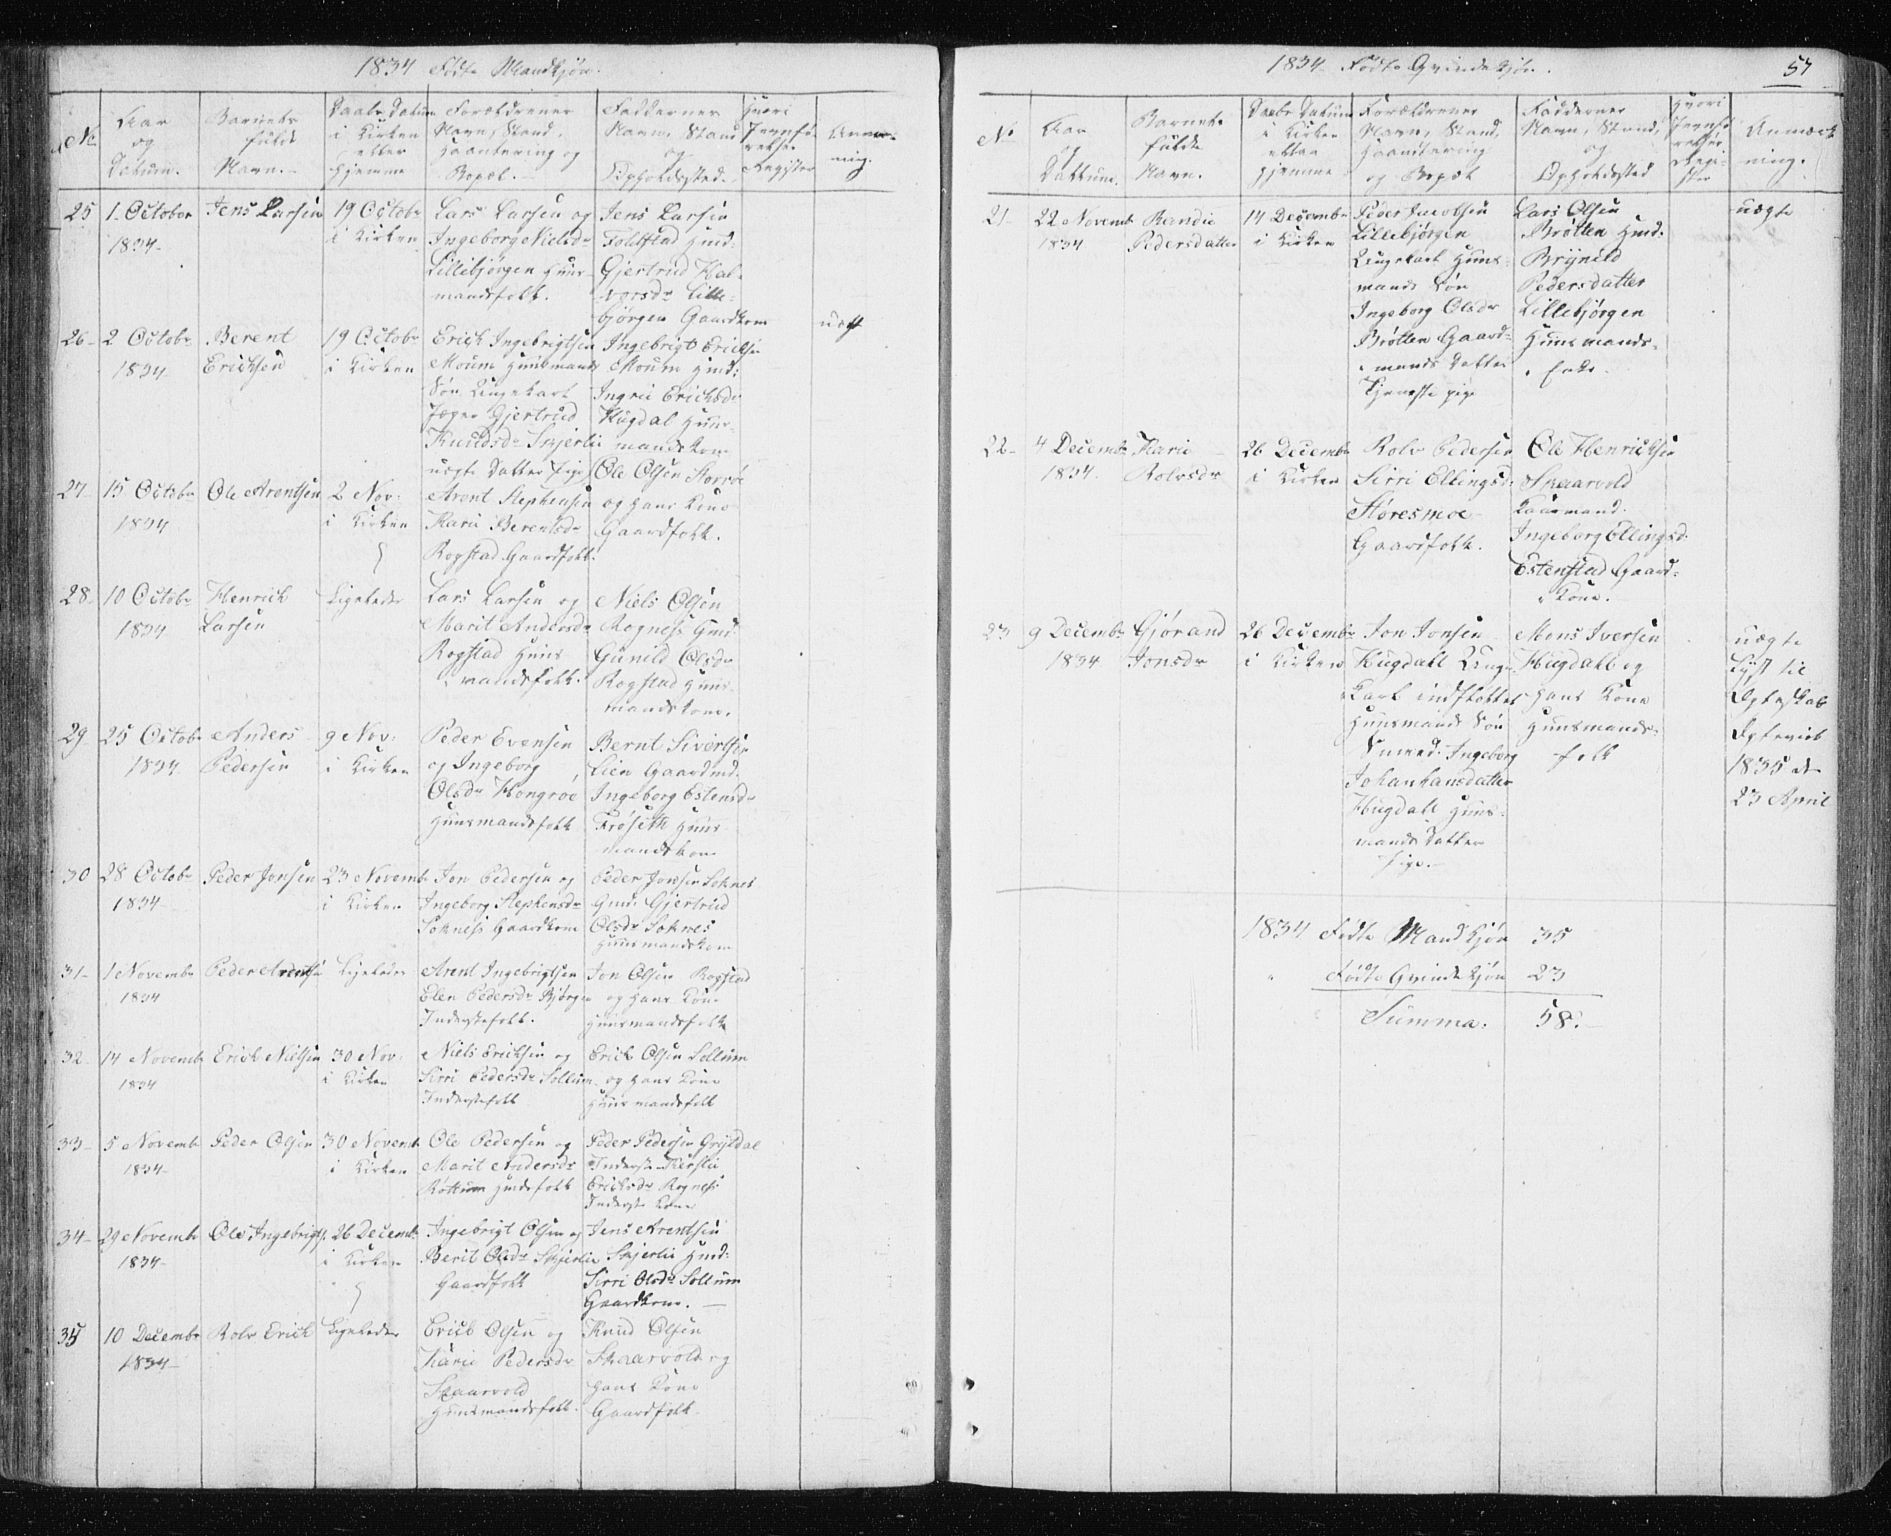 1834 Fødte Mandkjøn.
No
Aar og Datum.
Barnets fulde Navn.
Daabs Datum i Kirken eller hjemme
Forældrenes Navn, Stand, Haandtering og Bopæl.
Faddernes Navn, Stand og Opholdssted.
Hvori Jevnførelses Register
Anmærkning.
25 1. October 1834.
Jens Larsen
19 Octobr i Kirken
Lars Larsen og
Ingeborg Nielsdr
Lillebjørgen Huus-
mandsfolk.
Jens Larsen
Foldstad Gmd:
Gjertrud Hal-
vorsdr Lille-
bjørgen Gaardkone
26 2 Octobr 1834
Berent Ericksen
19 Octobr i Kirken
Erick Ingebrigtsen
Moum Huusmands
Søn Ungekarl
Gjertrud
Knudsdr Skjerlie
uægte Datter Pige
Ingebrigt Ericksen
Moum Hmd:
Ingrie Ericksdr
Hugdal Huus-
mandskone
uægt
27 15 Octobr 1834
Ole Arentsen
2 Nov: i Kirken
Arent Stephensen
Kari Berentsdr
Rogstad Gaardfolk.
Ole Olsen Storrøe
og hans Kone
Gaardfolk.
28 10 Octobr 1834
Henrick Larsen
Ligeledes
Lars Larsen og
Marit Andersdr
Rogstad Huus
mandsfolk.
Niels Olsen
Rogness Gmd
Gunild Olsdr
Rogstad Huus-
mandskone.
29 25 Octobr 1834
Anders Pedersen
9 Nov: i Kirken
Peder Evensen
og Ingeborg
Olsdr Hongroe
Huusmandsfolk
Bernt Sivertsen
Lien Gaardmd.
Ingeborg Estensdr
Frøseth Huus
mandskone
30 28 Octobr 1834
Peder Jonsen
23 Novembr i Kirken
Jon Pedersen og
Ingeborg Stephensdr
Sokness Gaardkone
Peder Jonsen Soknes
Gmd. Gjertrud
Olsdr Soknes
Huusmandskone
31 1 Novembr 1834
Peder Arentsen
Ligeledes
Arent Ingebrigtsen
Elen Pedersdr Bjørgen
Inderstefolk.
Jon Olsen Rogstad
og hans Kone
Huusmandsfolk
32 14 Novembr 1834
Erick Nielsen
30 Nov: i Kirken
Niels Ericksen og
Sirri Pedersdr Sollum
Inderstefolk
Erick Olsen Sollum
og hans Kone
Huusmandsfolk
33 5 Novembr 1834
Peder Olsen
30 Novembr i Kirken
Ole Pedersen og
Marit Andersdr
Røttum Hmdsfolk
Peder Pedersen Gryttdal
Inderst Kirstie
Ericksdr Rogness
Inderst Kone
34 29 Novembr 1834
Ole Ingebrigts.
26 Decembr i Kirken
Ingebrigt Olsen og
Berit Olsdr Skjerlie
Gaardfolk
Jens Arentsen
Skjerlie Gmd:
Sirri Olsdr Sollum
Gaardkone.
35 10 Decembr 1834
Rolv Erick
Ligeledes
Erick Olsen og
Karie Pedersdr
Skaarvold
Huusmandsfolk.
Knud Olsen
Skaarvold og
hans Kone
Gaardfolk.
1834 Fødte Qvindekjøn. 57
No
Aar og Dattum.
Barnets fulde Navn.
Daabs Datum i Kirken eller hjemme
Forældrenes Navn, Stand, Haandtering og Bopæl
Faddernes Navn, Stand, og Opholdssted
Hvori Jevnførelses Register
Anmærkning.
21 22 Novembr 1834
Randie Pedersdatter
14 Decembr i Kirken
Peder Jacobsen
Lillebjørgen
Ungekarl Huus-
mands Søn
Ingeborg Olsdr
Brøtten Gaard-
mands Datter
Tjeneste pige
Lars Olsen
Brøtten Gmd:
Brynild
Pedersdatter
Lillebjørgen
Huusmands-
Enke.
uægte
22 4 Decembr 1834.
Karie Rolvsdr
26 Decembr i Kirken
Rolv Pedersen
Sirri Ellingsdr
Støresmoe
Gaardfolk.
Ole Henricksen
Skaarvold
Kaarmand.
Ingeborg Ellingsd.
Estenstad Gaard-
kone.
23 9 Decembr 1834
Gjørand Jonsdr
26 Decembr i Kirken
Jon Jonsen
Hugdall Unge
Karl indflottet
Huusmands Søn
Ingeborg
Johanhansdatter
Hugdall Huus-
mands Datter
Pige.
Mons Iversen
Hugdall og
hans Kone
Huusmands-
folk
uægte
Lyst til
Egteskab
Egteviet
1835 d
23 April
1834 Fødte Mandkjøn 35
" Fødte Qvindekjøn 23
Summa: 58.